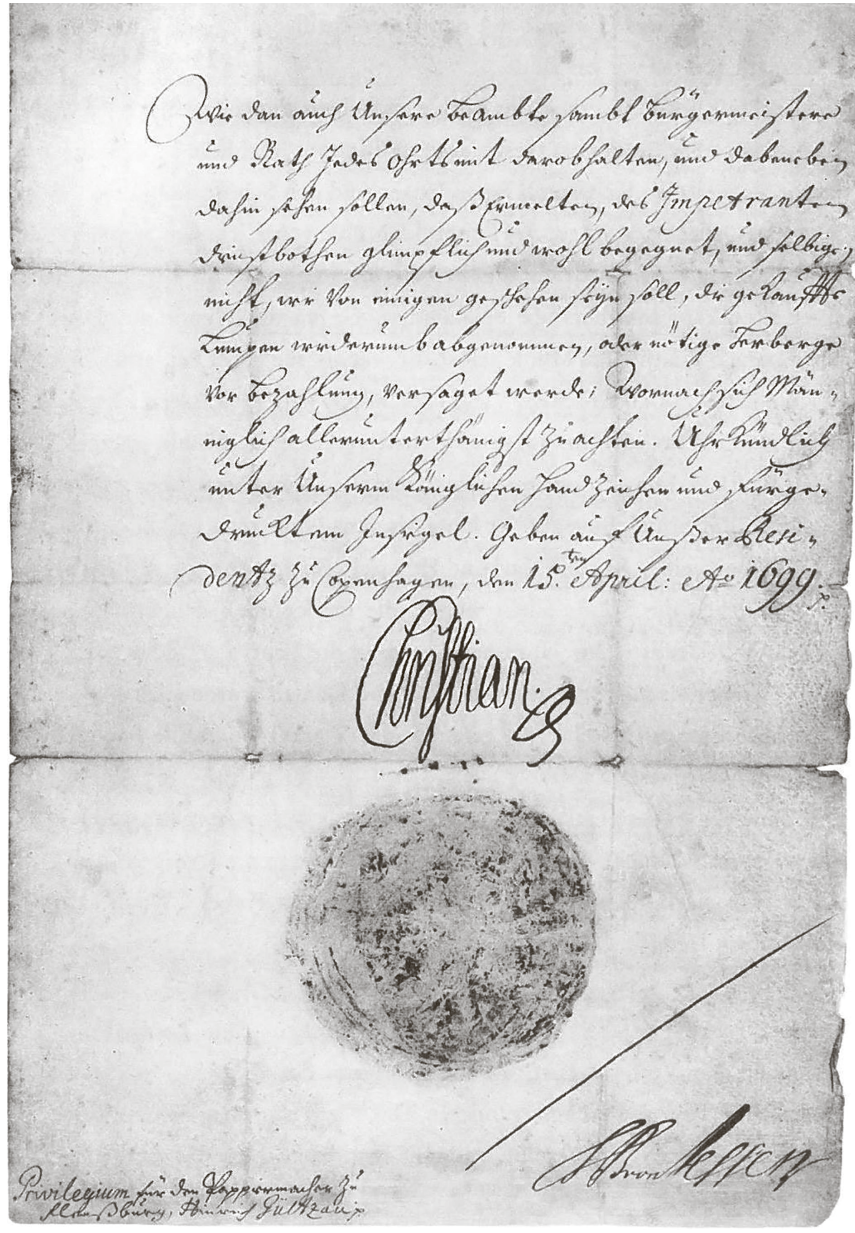 Wie dan auch Unsere Beambte sambt Bürgermeistere
und Rath Jedes Ohrts mit darobhalten, und dabeneben
dahin sehen sollen, daß Ermelten, des Impetranten
dienstbothen glimpflich und wohl begegnet, und selbigen
nicht, wie von einigen geschehen seyn soll, die gekauffte
Lumpen wiederumb abgenommen, oder nötige Herberge
vor bezahlung, versaget werde; Wornach sich Män-
niglich allerunterthänigst zu achten. Uhrkündlich
unter Unserm Königlichen Handzeichen und fürge-
drucktem Insigel. Geben auf Unßer Resi-
dentz zu Copenhagen, den 15.ten April: Ao 1699.
Christian
von Jessen
Privilegium für den Pappiermacher zu
Flenßburg, Hinrich Gültzau